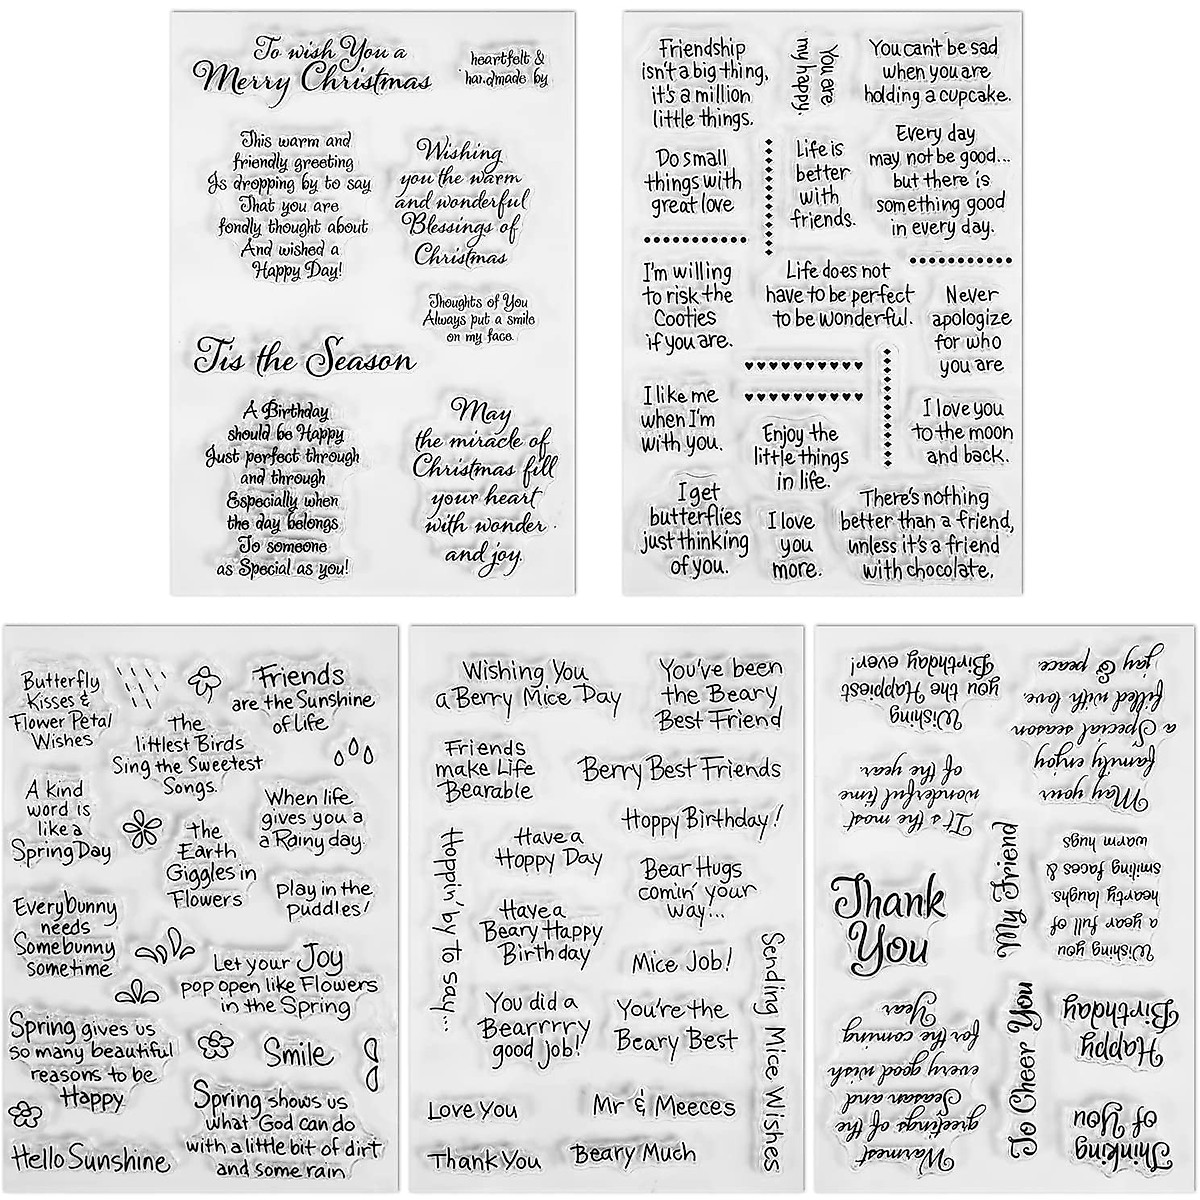 To wish You a
Merry Christmas
heartfelt &
handmade by
This warm and
friendly greeting
Is dropping by to say
That you are
fondly thought about
And wished a
Happy Day!
Wishing
you the warm
and wonderful
Blessings of
Christmas
Thoughts of You
Always put a smile
on my face.
Tis the Season
A Birthday
should be Happy
Just perfect through
and through
Especially when
the day belongs
To someone
as Special as you!
May
the miracle of
Christmas fill
your heart
with wonder
and joy.
Friendship
isn't a big thing,
it's a million
little things.
You are
my happy.
You can't be sad
when you are
holding a cupcake.
Do small
things with
great love
Life is
better
with
friends.
Every day
may not be good...
but there is
something good
in every day.
I'm willing
to risk the
Cooties
if you are.
Life does not
have to be perfect
to be wonderful.
Never
apologize
for who
you are
I like me
when I'm
with you.
Enjoy the
little things
in life.
I love you
to the moon
and back.
I get
butterflies
just thinking
of you.
I love
you
more.
There's nothing
better than a friend,
unless it's a friend
with chocolate.
Butterfly
Kisses &
Flower Petal
Wishes
Friends
are the Sunshine
of Life
The
littlest Birds
Sing the Sweetest
Songs.
A kind
word is
like a
Spring Day
When life
gives you a
a Rainy day.
The
Earth
Giggles in
Flowers
play in the
puddles!
Everybunny
needs
Somebunny
sometime
Let your Joy
pop open like Flowers
in the Spring
Spring gives us
so many beautiful
reasons to be
Happy
Smile
Spring shows us
what God can do
with a little bit of dirt
and some rain
Hello Sunshine
Wishing You
a Berry Mice Day
You've been
the Beary
Best Friend
Friends
make Life
Bearable
Berry Best Friends
Hoppy Birthday!
Hoppin' by to say...
Have a
Hoppy Day
Bear Hugs
comin' your
way...
Have a
Beary Happy
Birthday
Mice Job!
Sending Mice Wishes
You did a
Bearrrry
good job!
You're the
Beary Best
Love You
Mr & Meeces
Thank You
Beary Much
Wishing
you the Happiest
Birthday ever!
May your
family enjoy
a Special season
filled with love
joy & peace.
It's the most
wonderful time
of the year
My Friend
Wishing you
a year full of
hearty laughs.
smiling faces &
warm hugs
Thank
You
Warmest
greetings of the
Season and
every good wish
for the coming
Year
To Cheer You
Happy
Birthday
Thinking
of You